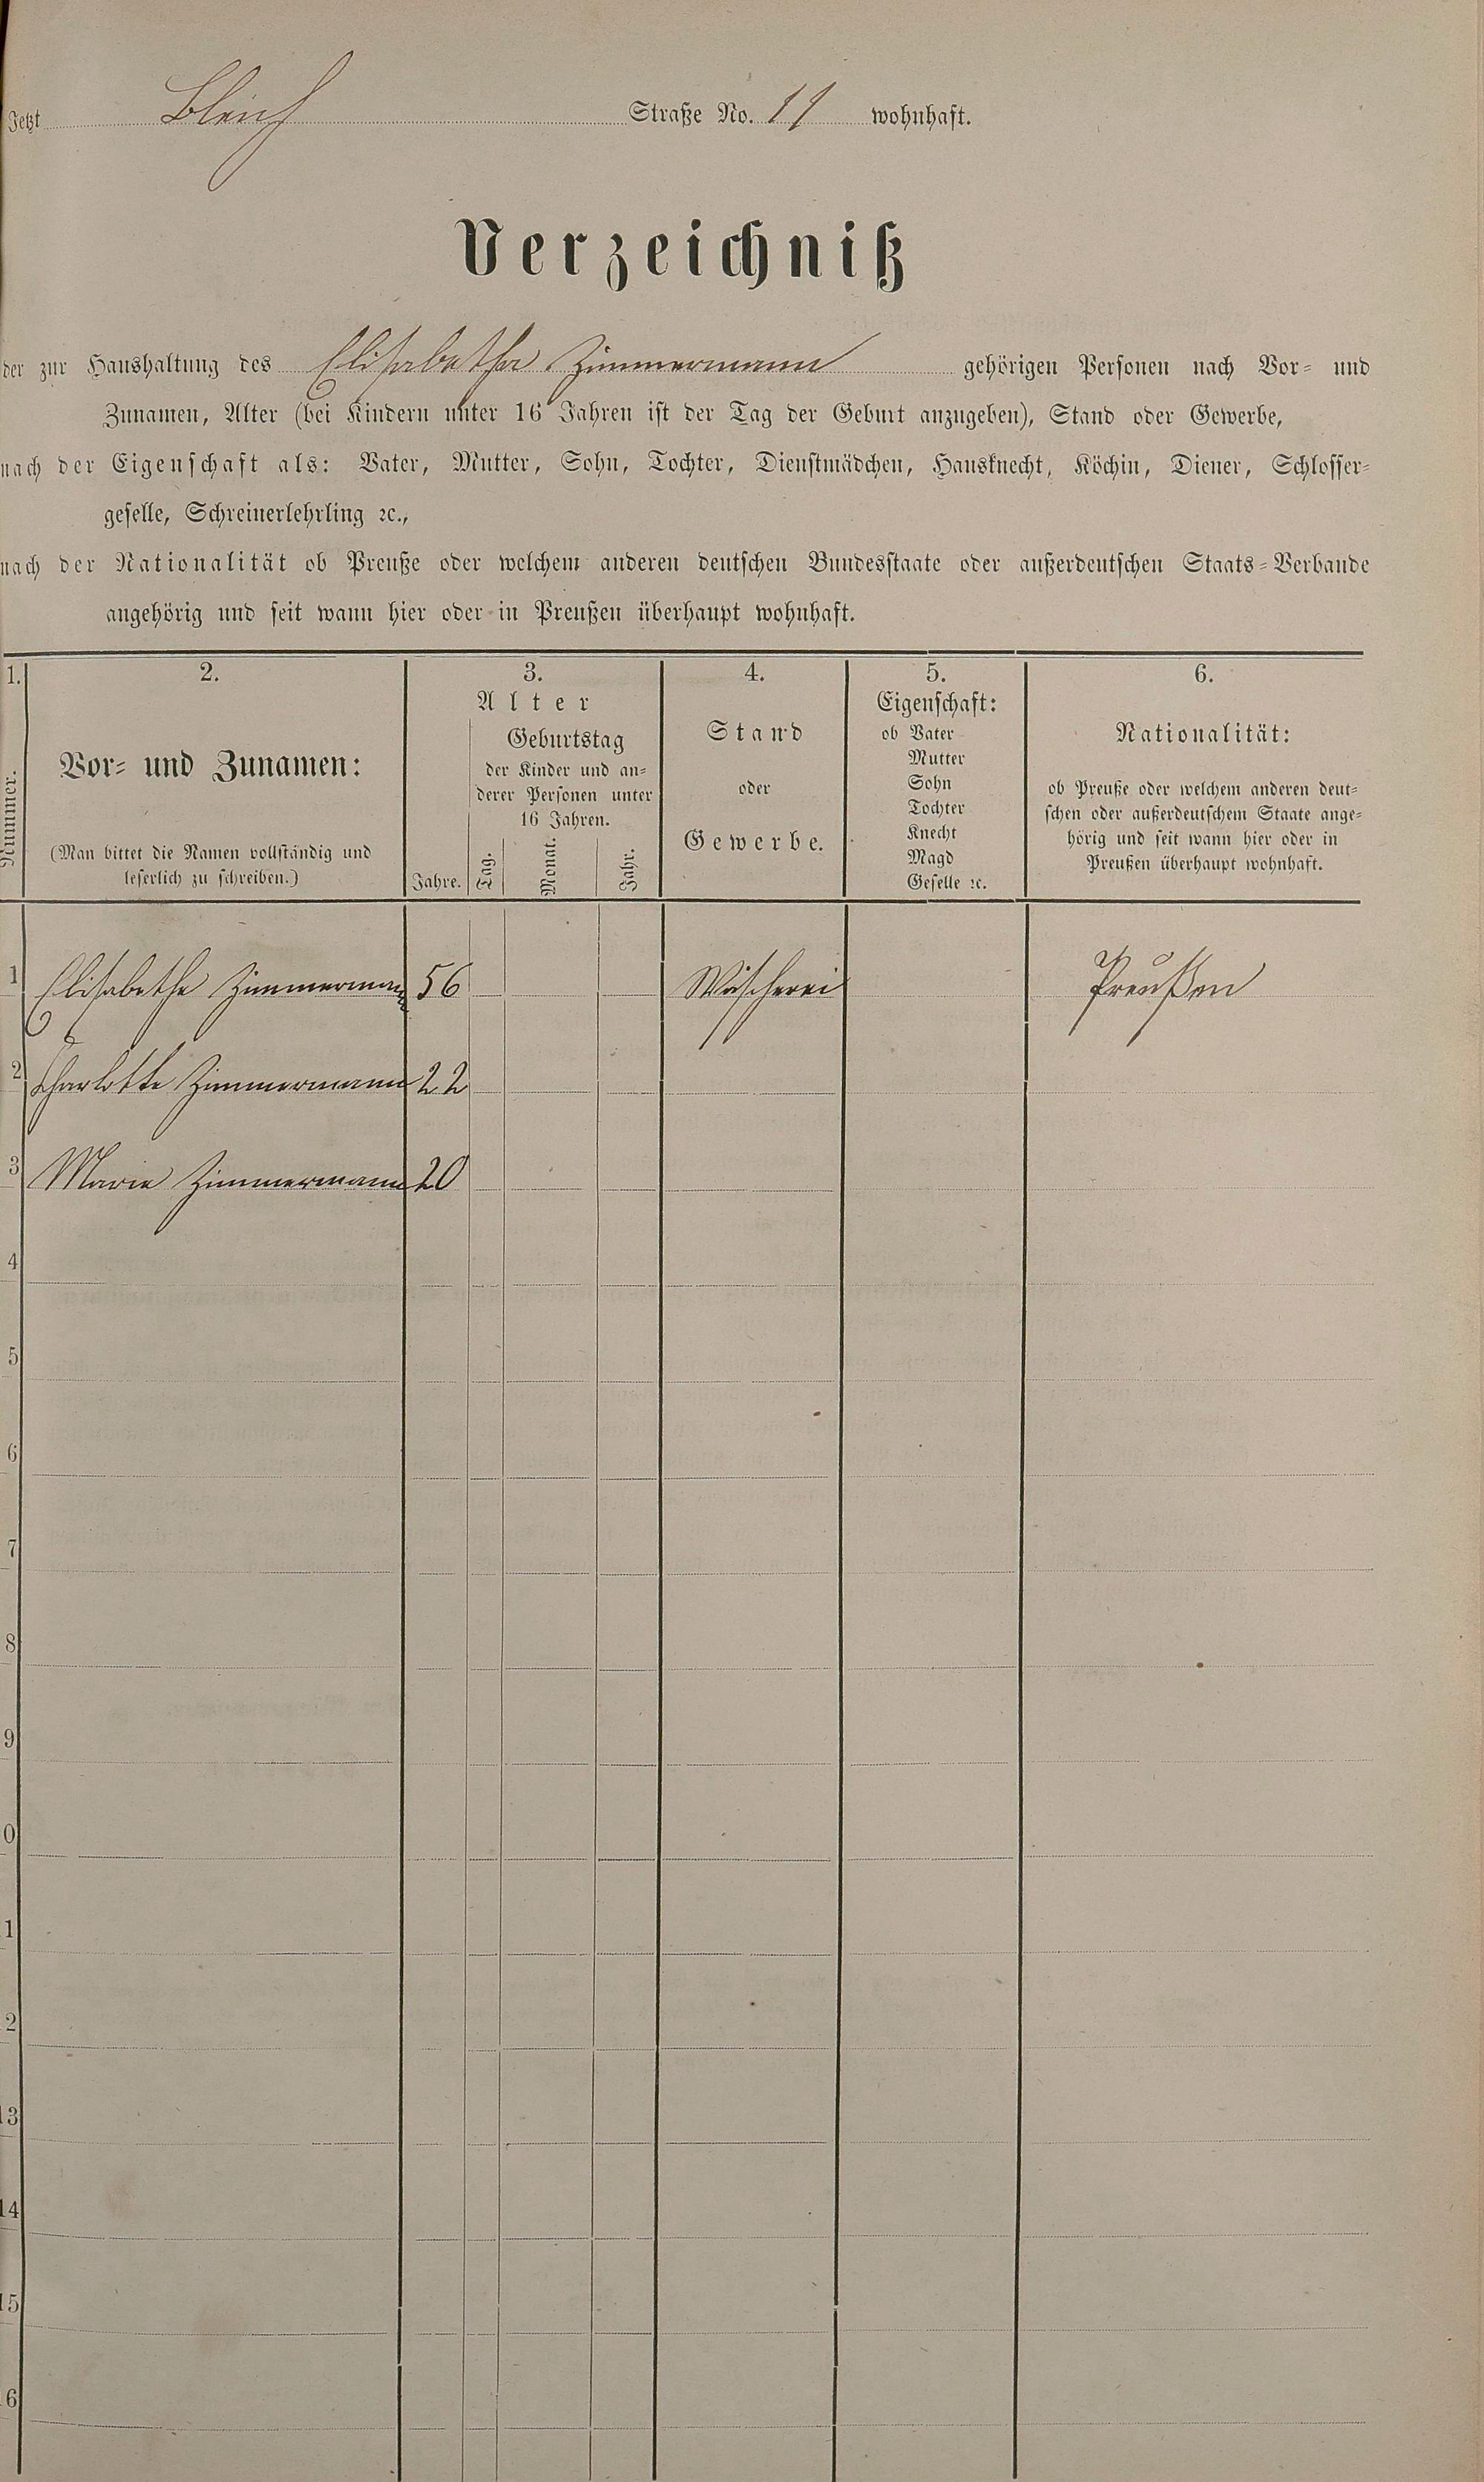 Jetzt Bleich Straße No. 11 wohnhaft.
Verzeichniß
der zur Haushaltung des Elisabetha Zimmermann gehörigen Personen nach Vor- und
Zunamen, Alter (bei Kindern unter 16 Jahren ist der Tag der Geburt anzugeben), Stand oder Gewerbe,
nach der Eigenschaft als: Vater, Mutter, Sohn, Tochter, Dienstmädchen, Hausknecht, Köchin, Diener, Schlosser-
geselle, Schreinerlehrling ꝛc.,
nach der Nationalität ob Preuße oder welchem anderen deutschen Bundesstaate oder außerdeutschen Staats-Verbande
angehörig und seit wann hier oder in Preußen überhaupt wohnhaft.
1. 2. 3. 4. 5. 6.
Nummer.
Vor- und Zunamen:
(Man bittet die Namen vollständig und
leserlich zu schreiben.)
Alter
Jahre.
Geburtstag
der Kinder und an-
derer Personen unter
16 Jahren.
Tag. Monat. Jahr.
Stand
oder
Gewerbe.
Eigenschaft:
ob Vater
Mutter
Sohn
Tochter
Knecht
Magd
Geselle ꝛc.
Nationalität:
ob Preuße oder welchem anderen deut-
schen oder außerdeutschem Staate ange-
hörig und seit wann hier oder in
Preußen überhaupt wohnhaft.
1 Elisabetha Zimmermann 56 Wäscherei Preußen
2 Charlotte Zimmermann 22
3 Marie Zimmermann 20
4
5
6
7
8
9
0
1
2
13
14
15
6